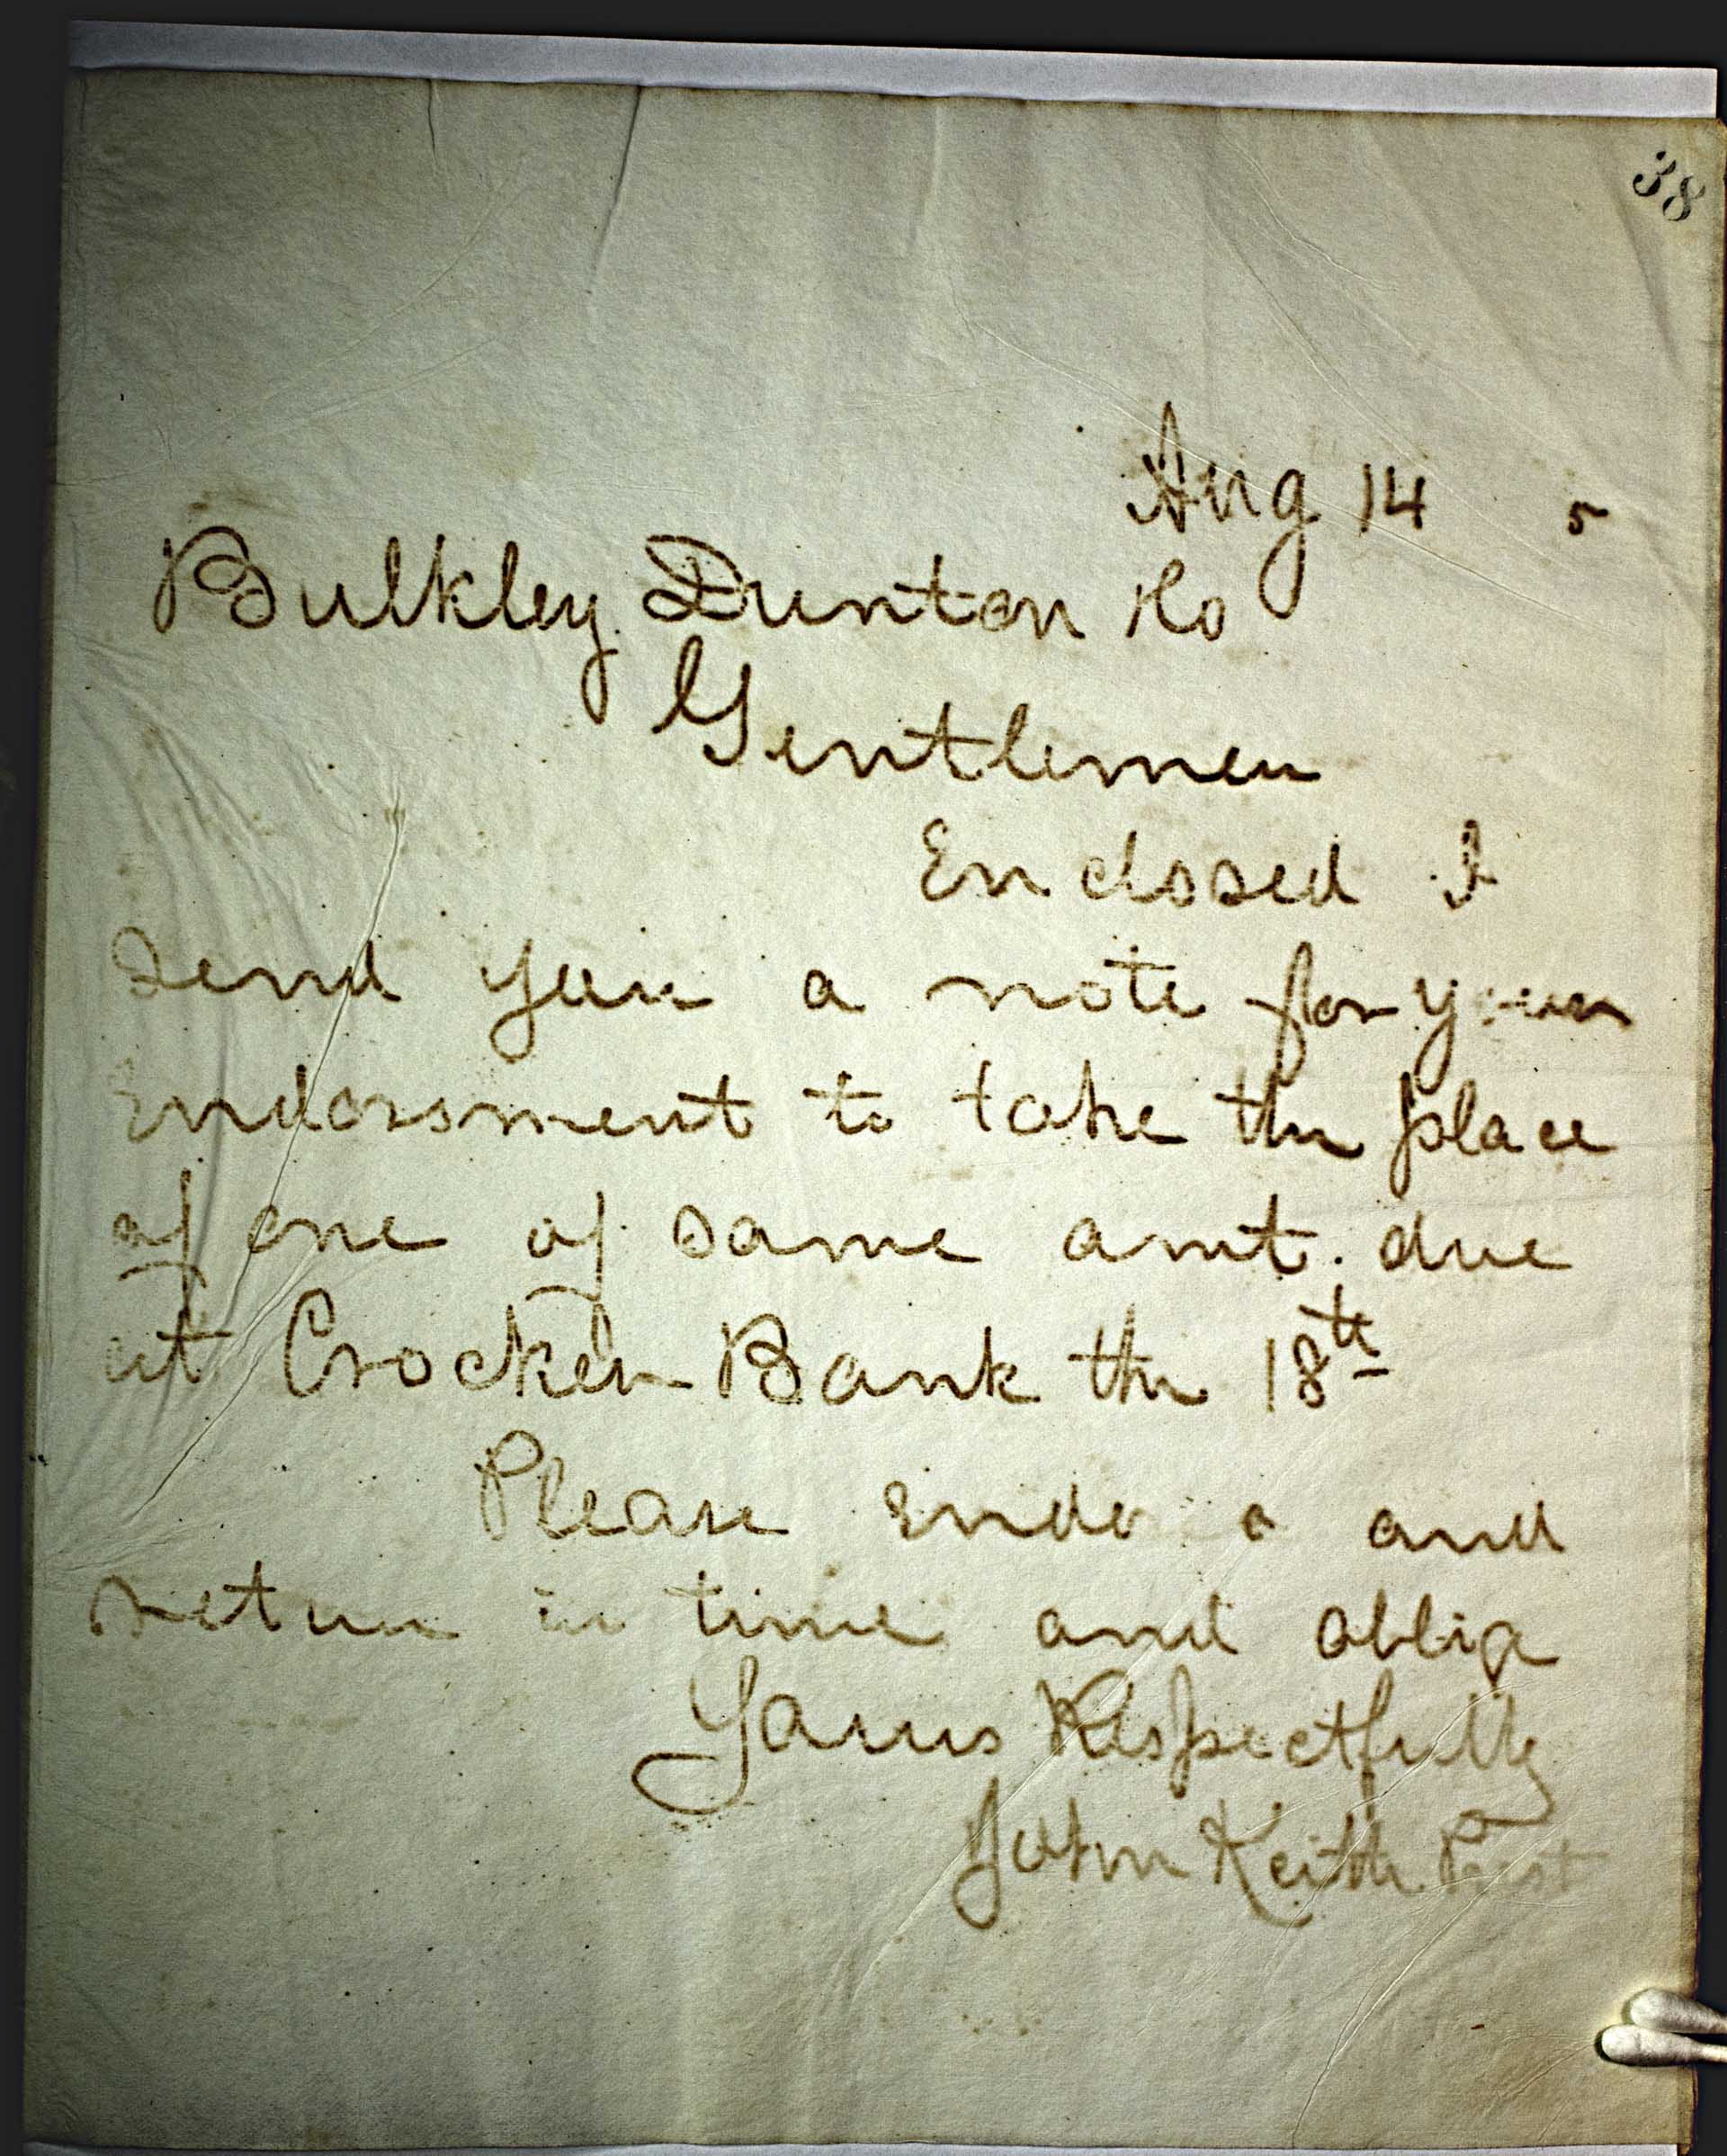 38
Aug 14 5
Bulkley Dunton & Co
Gentlemen
Enclosed I
send you a note for your
endorsment to take the place
of one of same amt. due
at Crocker Bank the 18th
Please and
return in time and oblige
Yours Respectfully
John Keith Prest